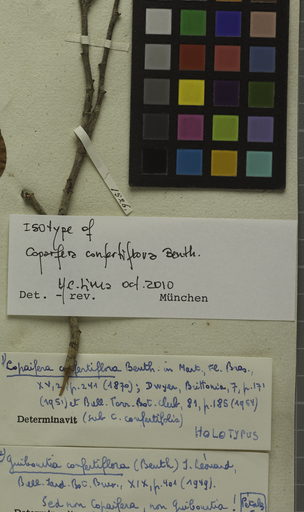 Isotype of
Copaifera confertiflora Benth.
H.C. Lima oct. 2010
Det. rev. München
1) Copaifera confertiflora Benth. in Mart., Fl. Bras.,
XV, 2, p. 241 (1870); Dwyer, Brittonia, 7, p. 171
(1951) et Bull. Torr. Bot. Club, 81, p. 185 (1954)
Determinavit (sub C. confertifolia)
HOLOTYPUS
2) Guibourtia confertiflora (Benth.) J. Léonard,
Bull. Jard. Bot. Brux., XIX, p. 401 (1949).
Sed non Copaifera, non Guibourtia! Petals